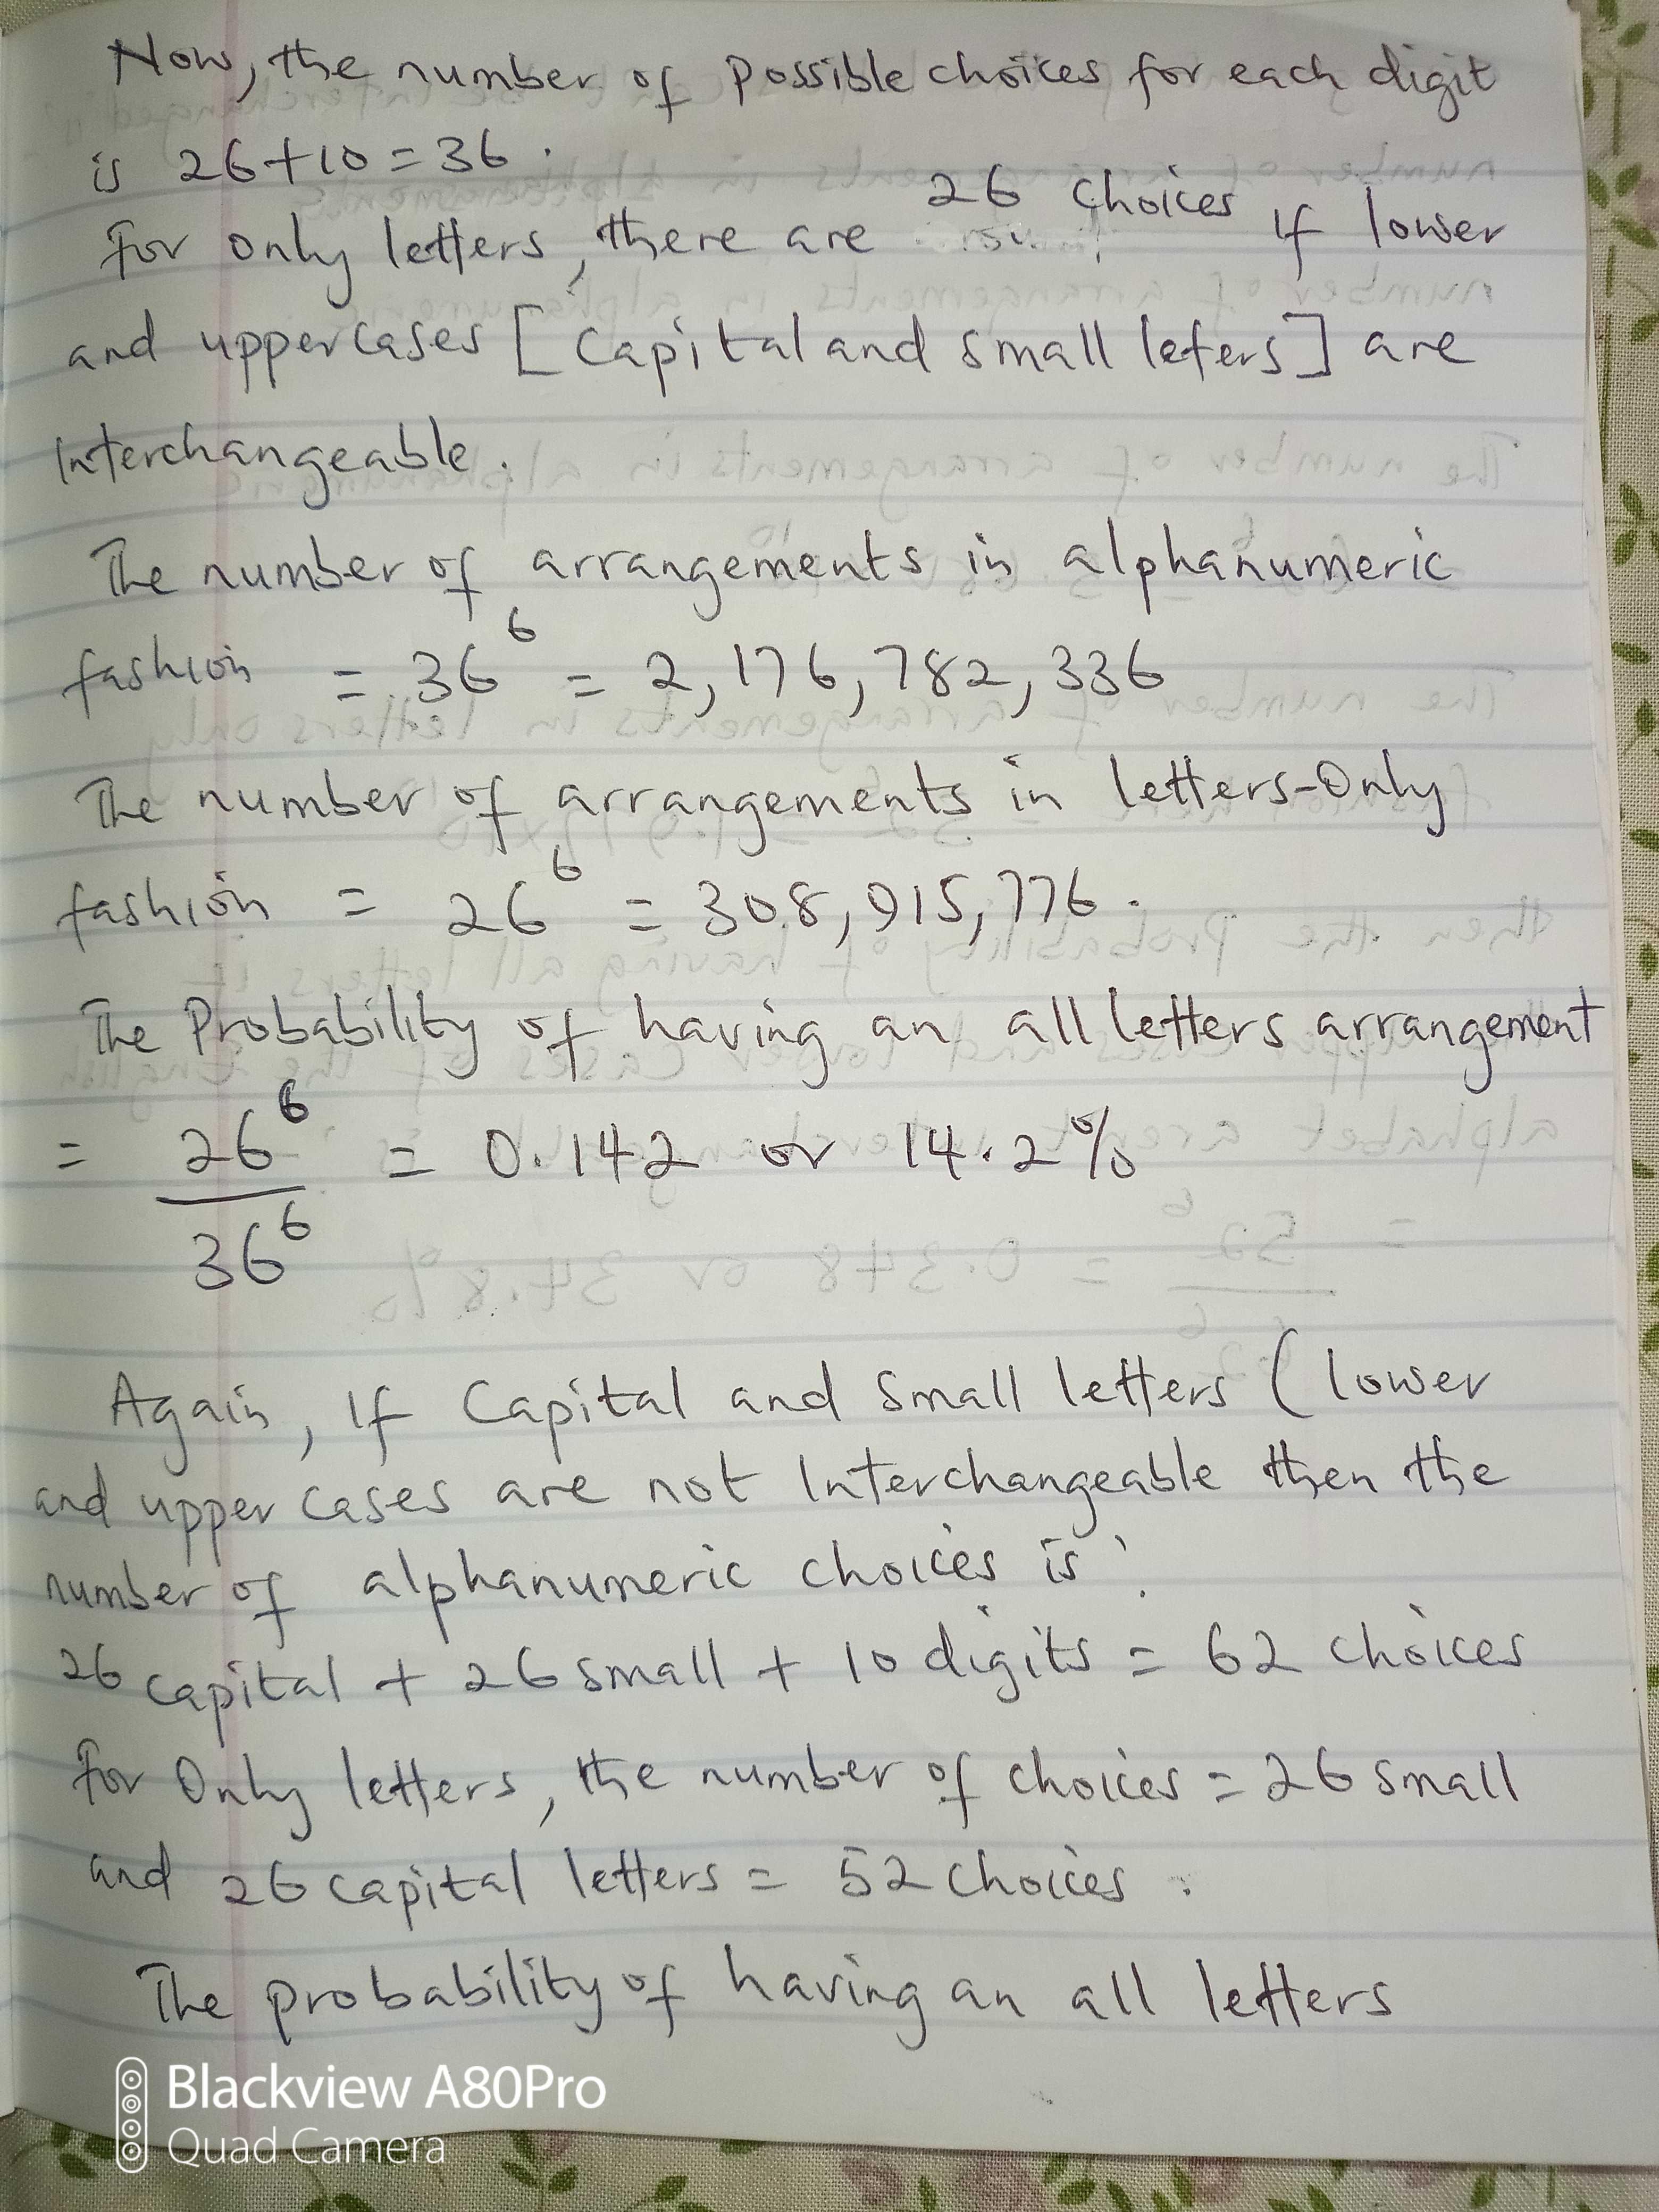 Now, the number of possible choices for each digit
is 26+10=36.
For only letters, there are 26 choices if lower
and uppercases [Capital and small leters] are
Interchangeable.
The number of arrangements in alphanumeric
fashion = 36^6 = 2,176,782,336
The number of arrangements in letters-Only
fashion = 26^6 = 308,915,776.
The Probability of having an all letters arrangement
= 26^6/36^6 = 0.142 or 14.2%
Again, If Capital and Small letters ( lower
and upper cases are not Interchangeable then the
number of alphanumeric choices is:
26 capital + 26 small + 10 digits = 62 choices
For Only letters, the number of choices = 26 small
and 26 capital letters = 52 choices.
The probability of having an all letters
Blackview A80Pro
Quad Camera